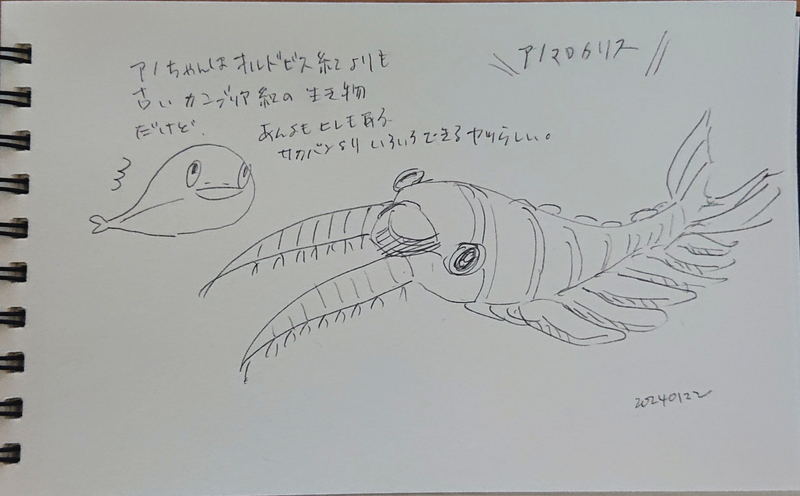 アノマロカリス
アノちゃんはオルドビス紀よりも
古いカンブリア紀の生き物
だけど、
あんよもヒレも
サカバンよりいろいろできるヤツらしい。
20240122